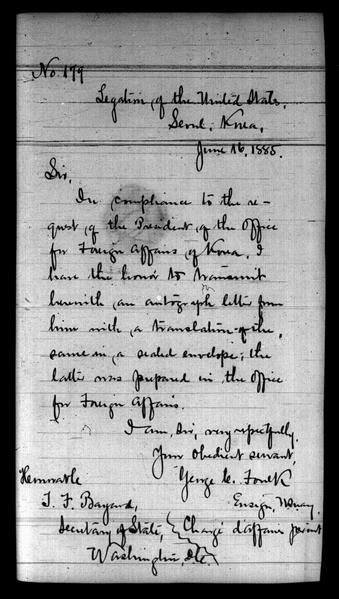 No. 179
Legation of the United States,
Seoul, Korea,
June 16, 1885.
Sir,
In compliance to the re-
quest of the President of the Office
for Foreign Affairs of Korea, I
have the honor to transmit
herewith an autograph letter from
him with a translation of the
same in a sealed envelope; the
latter was prepared in the Office
for Foreign Affairs.
I am, Sir, very respectfully,
Your obedient servant,
George C. Foulk
Ensign, U.S. Navy,
Chargé d'affaires
Honorable
T. F. Bayard,
Secretary of State,
Washington, D.C.